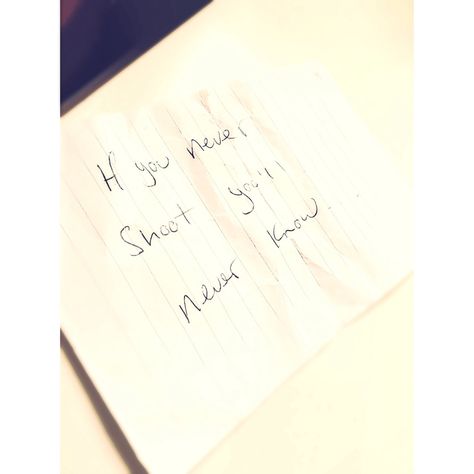 If you never
Shoot you'll
never know...